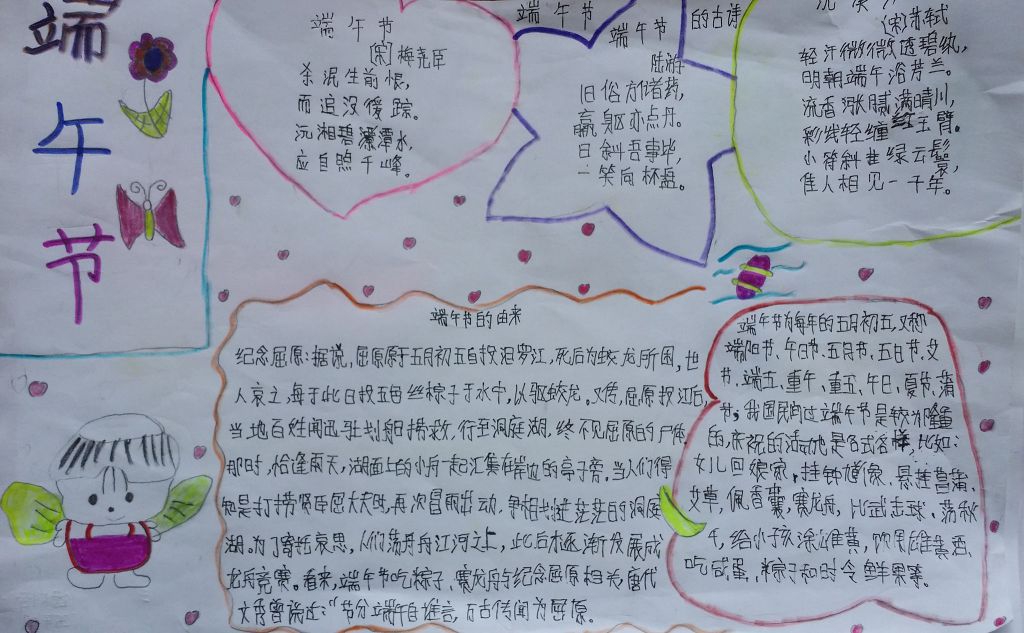 端
午
节
端午节
的古诗
端午节
(宋)梅尧臣
杀泯生前恨,
而追没后踪。
沅湘碧潭水,
应自照千峰。
端午节
陆游
旧俗方储药,
羸躯亦点丹。
日斜吾事毕,
一笑向杯盘。
(宋)苏轼
轻汗微微透碧纨,
明朝端午浴芳兰。
流香涨腻满晴川,
彩线轻缠红玉臂。
小符斜挂绿云鬟,
佳人相见一千年。
端午节的由来
纪念屈原:据说,屈原于五月初五自投汨罗江,死后为蛟龙所困,世
人哀之,每于此日投五色丝粽子于水中,以驱蛟龙。又传,屈原投江后,
当地百姓闻迅赶划船捞救,行至洞庭湖,终不见屈原的尸体。
那时,恰逢雨天,湖面上的小舟一起汇集在岸边的亭子旁。当人们得
知是打捞贤臣屈大夫时,再次冒雨出动,争相划进茫茫的洞庭
湖。为了寄托哀思,人们荡舟江河之上,此后才逐渐发展成
龙舟竞赛。看来,端午节吃粽子、赛龙舟与纪念屈原相关,唐代
文秀曾说过:“节分端午自谁言,万古传闻为屈原。
端午节为每年的五月初五,又称
端阳节、午日节、五月节、五日节、艾
节、端五、重午、重五、午日、夏节、蒲
节,我国民间过端午节是较为隆重
的,庆祝的活动也是各式各样,比如:
女儿回娘家,挂钟馗像、悬挂菖蒲、
艾草,佩香囊,赛龙舟,比武击球、荡秋
千,给小孩涂雄黄,饮用雄黄酒、
吃咸蛋、粽子和时令鲜果等。